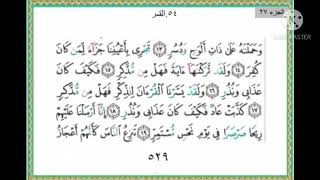 ٥٤ القمر
الجزء ٢٧
وَحَمَلْنَٰهُ عَلَىٰ ذَاتِ أَلْوَٰحٍ وَدُسُرٍ ١٣ تَجْرِى بِأَعْيُنِنَا جَزَآءً لِّمَن كَانَ
كُفِرَ ١٤ وَلَقَد تَّرَكْنَٰهَآ ءَايَةً فَهَلْ مِن مُّدَّكِرٍ ١٥ فَكَيْفَ كَانَ
عَذَابِى وَنُذُرِ ١٦ وَلَقَدْ يَسَّرْنَا ٱلْقُرْءَانَ لِلذِّكْرِ فَهَلْ مِن مُّدَّكِرٍ
١٧ كَذَّبَتْ عَادٌ فَكَيْفَ كَانَ عَذَابِى وَنُذُرِ ١٨ إِنَّآ أَرْسَلْنَا عَلَيْهِمْ
رِيحًا صَرْصَرًا فِى يَوْمِ نَحْسٍ مُّسْتَمِرٍّ ١٩ تَنزِعُ ٱلنَّاسَ كَأَنَّهُمْ أَعْجَازُ
٥٢٩